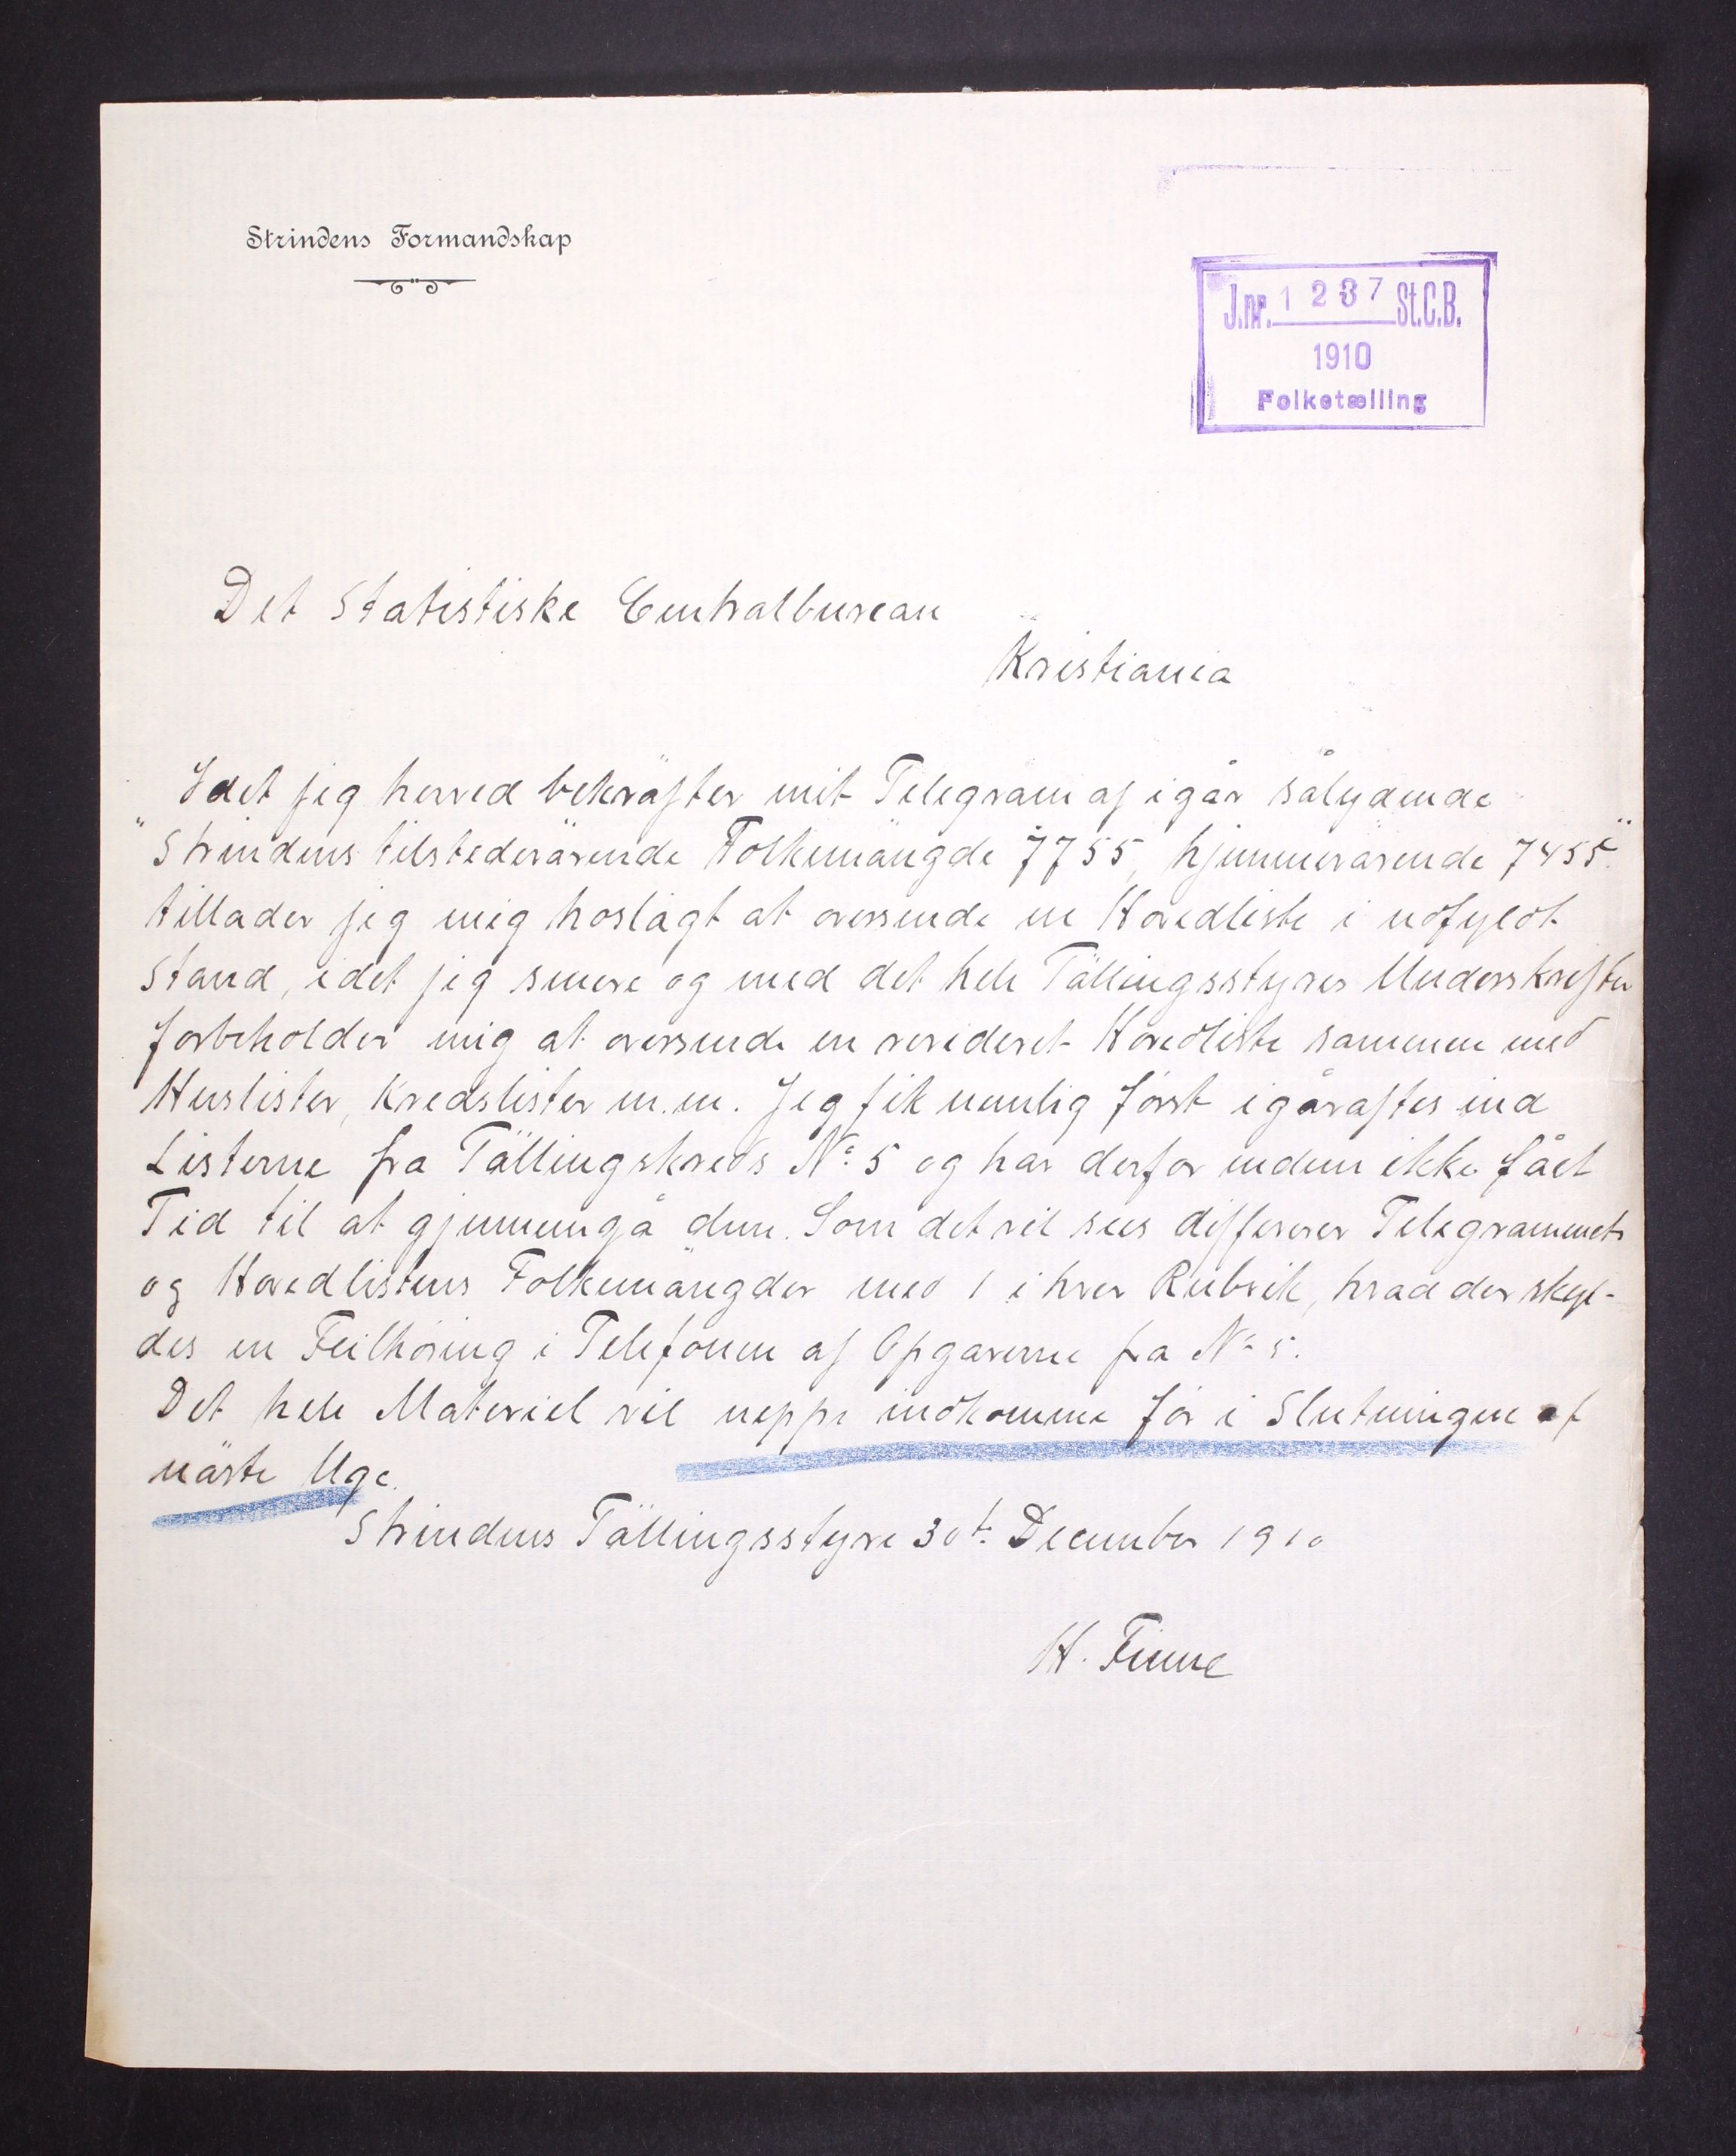 Strindens Formandskap
J.nr. 1237 St.C.B.
1910
Folketælling
Det Statistiske Centralbureau
Kristiania
Idet jeg herved bekräfter mit Telegram af igår sålydende
"Strindens tilstedevärende Folkemängde 7755, hjemmevärende 7455."
tillader jeg mig hoslagt at oversende en Hovedliste i udfyldt
Stand, idet jeg senere og med det hele Tällingsstyres Underskrifter
forbeholder mig at oversende en revideret Hovedliste sammen med
Huslister, Kredslister m.m. Jeg fik nemlig först igåraftes ind
Listerne fra Tällingskreds No 5 og har derfor endnu ikke fået
Tid til at gjennemgå dem. Som det vil sees differerer Telegrammets
og Hovedlistens Folkemängder med 1 i hver Rubrik, hvad der skyl-
des en Feilhöring i Telefonen af Opgaverne fra No 5.
Det hele Materiel vil neppe indkomme för i Slutningen af
näste Uge.
Strindens Tällingsstyre 30t. December 1910
H. Finne